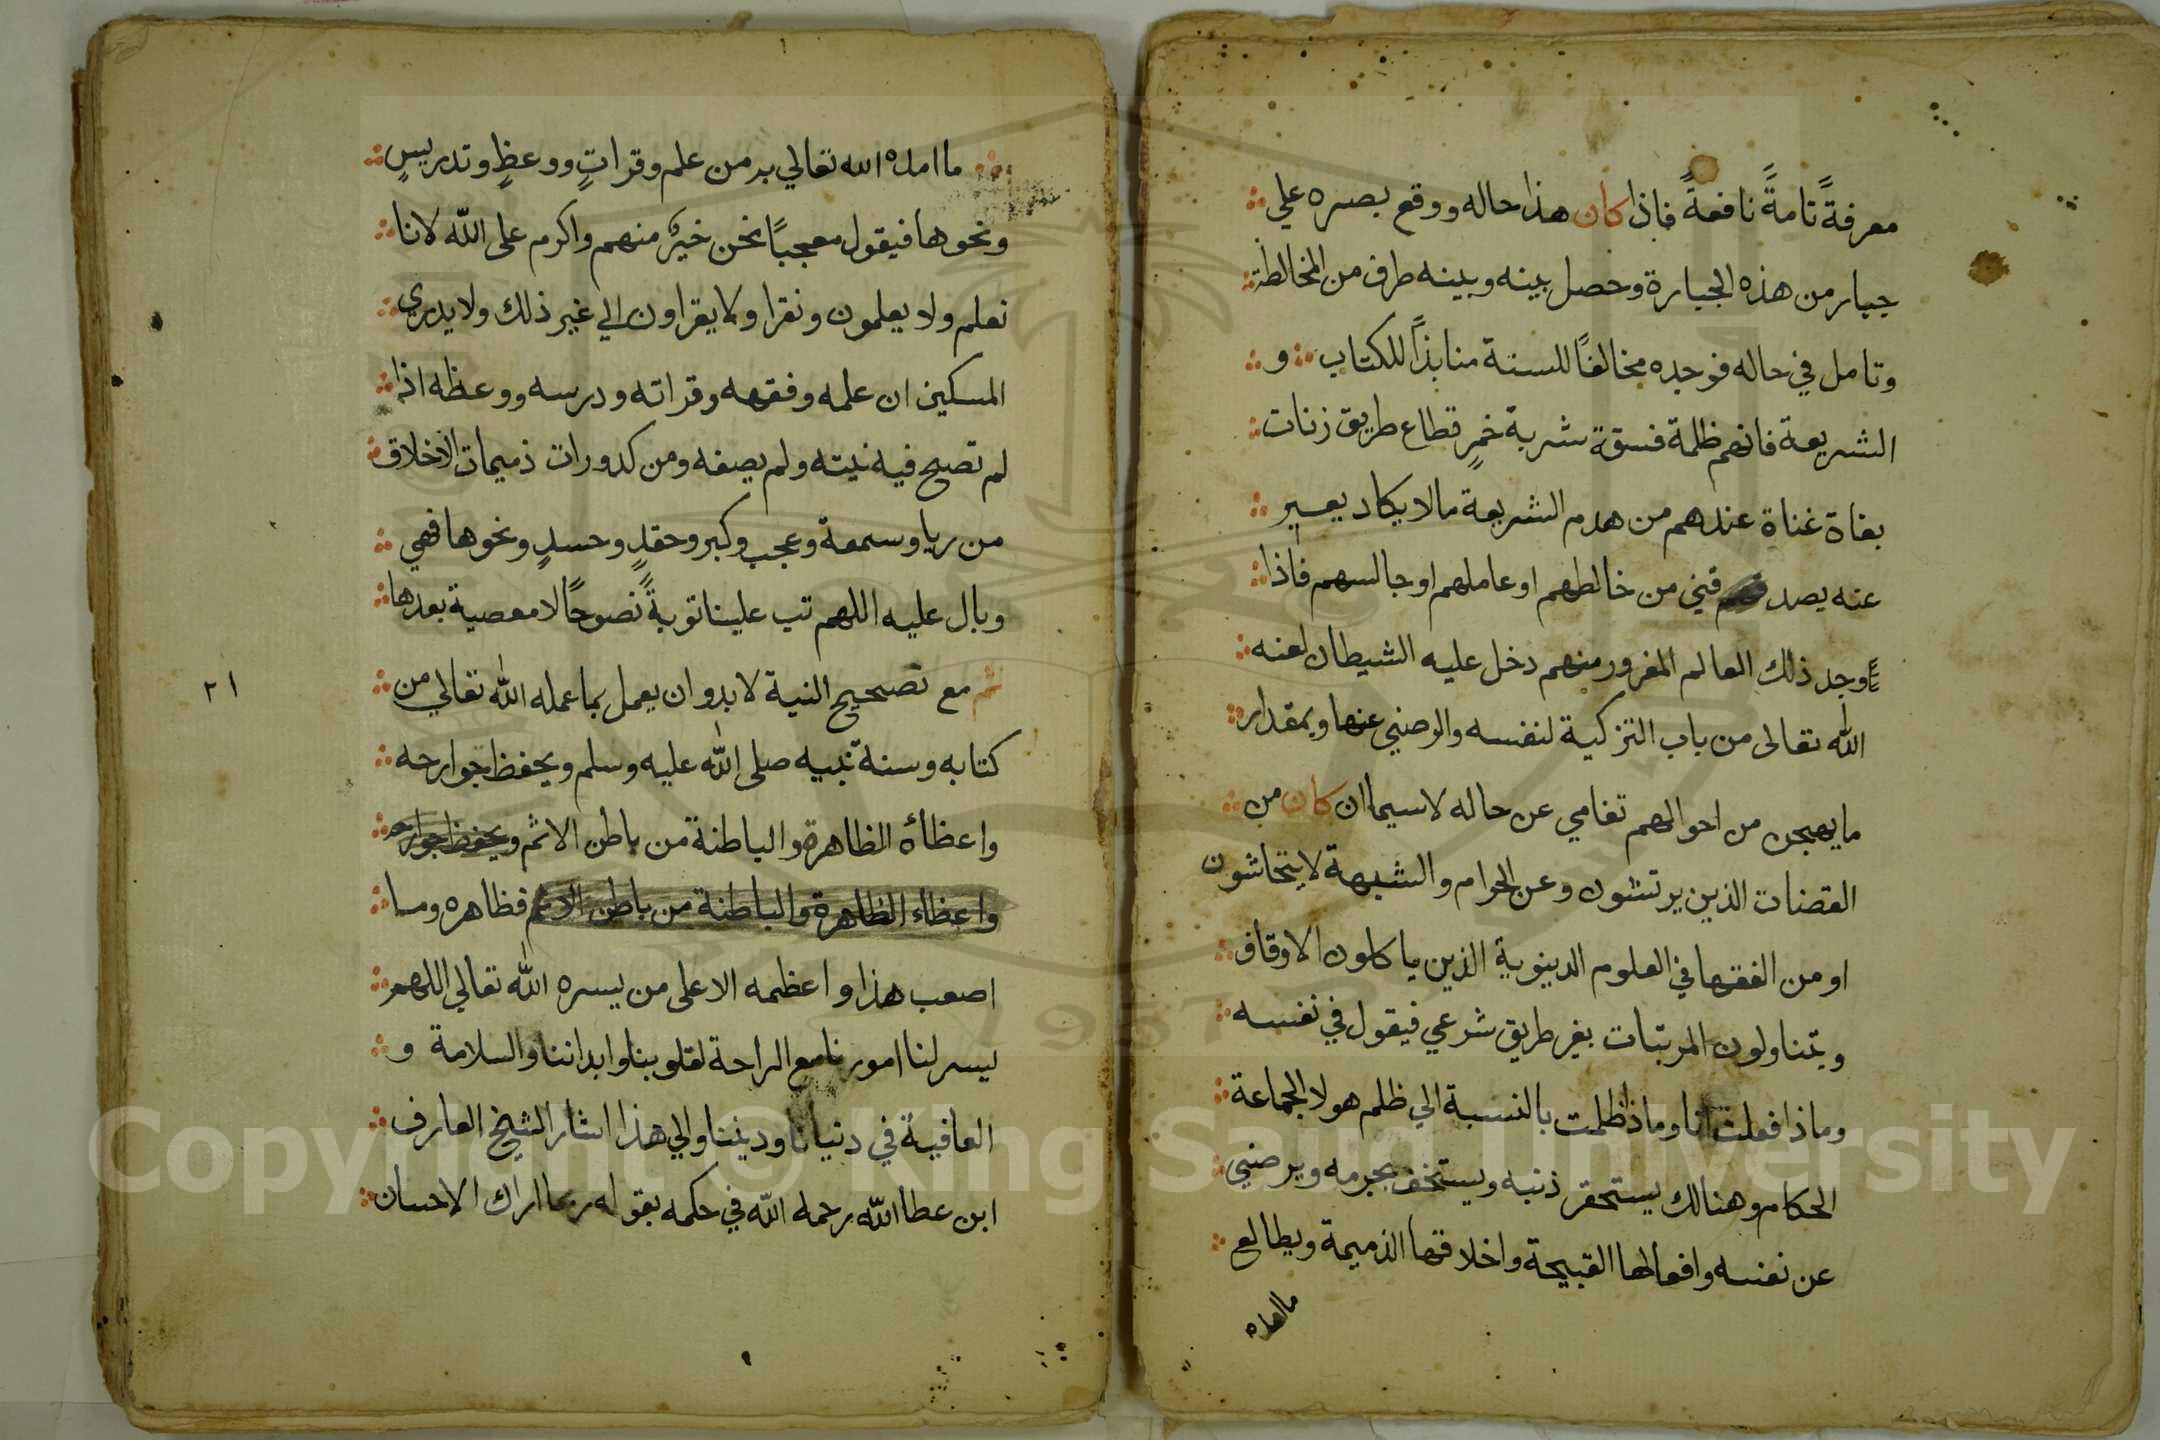 معرفةً تامةً نافعةً فاذا كان هذا حاله ووقع بصره علي
جبار من هذه الجبارة وحصل بينه وبينه طرف من المخالطة
وتامل في حاله فوجده مخالفًا للسنة منابذًا للكتاب و
الشريعة فانهم ظلمة فسقة شربة خمرٍ قطاع طريق زنات
بغاة غناة عندهم من هدم الشريعة مالا يكاد يعبر
عنه يصد قني من خالطهم او عاملهم او جالسهم فاذا
وجد ذلك العالم المغرور منهم دخل عليه الشيطان لعنه
الله تعالى من باب التزكية لنفسه والرضي عنها وبمقدار
ما يهجن من احوالهم تعامي عن حاله لاسيما ان كان من
القضات الذين يرتشون وعن الحرام والشبهة لا يتحاشون
او من الفقها في العلوم الدينوية الذين ياكلون الاوقاف
ويتناولون المرتبات بغير طريق شرعي فيقول في نفسه
وماذا فعلت انا وماذا ظلمت بالنسبة الي ظلم هولا الجماعة
الحكام وهنالك يستحقر ذنبه ويستخف بجرمه ويرضي
عن نفسه وافعالها القبيحة واخلاقها الذميمة ويطالع
ما امده الله تعالي به من علم وقراتٍ ووعظٍ وتدريسٍ
ونحوها فيقول معجبًا نحن خيرٌ منهم واكرم على الله لانا
نعلم ولا يعلمون ونقرا ولا يقراون الي غير ذلك ولا يدري
المسكين ان علمه وفقهه وقراته ودرسه ووعظه اذا
لم تصح فيه نيته ولم يصفه ومن كدورات ذميمات الاخلاق
من ريا وسمعة وعجب وكبر وحقدٍ وحسدٍ ونحوها فهي
وبال عليه اللهم تب علينا توبةً نصوحًا لا معصية بعدها
ثم مع تصحيح النية لا بد وان يعمل بما علمه الله تعالي من
٢١
كتابه وسنة نبيه صلى الله عليه وسلم ويحفظ جوارحه
واعظاه الظاهرة والباطنة من باطن الاثم ويحفظ جوارحه
واعظاه الظاهرة والباطنة من باطن الاثم فظاهره وما
اصعب هذا واعظمه الا على من يسره الله تعالي اللهم
يسر لنا امورنا مع الراحة لقلوبنا وابداننا والسلامة و
العافية في دنيانا وديننا والي هذا اشار الشيخ العارف
ابن عطا الله رحمه الله في حكمه بقوله ربما اراك الاحسان
Copyright © King Saud University
1957